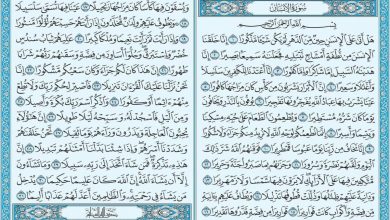 سُورَةُ الإِنسَانِ
بِسْمِ اللَّهِ الرَّحْمَٰنِ الرَّحِيمِ
هَلْ أَتَىٰ عَلَى الْإِنسَانِ حِينٌ مِّنَ الدَّهْرِ لَمْ يَكُن شَيْئًا مَّذْكُورًا ١ إِنَّا خَلَقْنَا
الْإِنسَانَ مِن نُّطْفَةٍ أَمْشَاجٍ نَّبْتَلِيهِ فَجَعَلْنَاهُ سَمِيعًا بَصِيرًا ٢ إِنَّا
هَدَيْنَاهُ السَّبِيلَ إِمَّا شَاكِرًا وَإِمَّا كَفُورًا ٣ إِنَّا أَعْتَدْنَا لِلْكَافِرِينَ سَلَاسِلَا
وَأَغْلَالًا وَسَعِيرًا ٤ إِنَّ الْأَبْرَارَ يَشْرَبُونَ مِن كَأْسٍ كَانَ مِزَاجُهَا كَافُورًا ٥
عَيْنًا يَشْرَبُ بِهَا عِبَادُ اللَّهِ يُفَجِّرُونَهَا تَفْجِيرًا ٦ يُوفُونَ بِالنَّذْرِ وَيَخَافُونَ
يَوْمًا كَانَ شَرُّهُ مُسْتَطِيرًا ٧ وَيُطْعِمُونَ الطَّعَامَ عَلَىٰ حُبِّهِ مِسْكِينًا
وَيَتِيمًا وَأَسِيرًا ٨ إِنَّمَا نُطْعِمُكُمْ لِوَجْهِ اللَّهِ لَا نُرِيدُ مِنكُمْ جَزَاءً وَلَا شُكُورًا ٩
إِنَّا نَخَافُ مِن رَّبِّنَا يَوْمًا عَبُوسًا قَمْطَرِيرًا ١٠ فَوَقَاهُمُ اللَّهُ شَرَّ ذَٰلِكَ
الْيَوْمِ وَلَقَّاهُمْ نَضْرَةً وَسُرُورًا ١١ وَجَزَاهُم بِمَا صَبَرُوا جَنَّةً وَحَرِيرًا ١٢
مُّتَّكِئِينَ فِيهَا عَلَى الْأَرَائِكِ لَا يَرَوْنَ فِيهَا شَمْسًا وَلَا زَمْهَرِيرًا ١٣
وَدَانِيَةً عَلَيْهِمْ ظِلَالُهَا وَذُلِّلَتْ قُطُوفُهَا تَذْلِيلًا ١٤ وَيُطَافُ عَلَيْهِم بِآنِيَةٍ
مِّن فِضَّةٍ وَأَكْوَابٍ كَانَتْ قَوَارِيرَا ١٥ قَوَارِيرَ مِن فِضَّةٍ قَدَّرُوهَا تَقْدِيرًا ١٦
وَيُسْقَوْنَ فِيهَا كَأْسًا كَانَ مِزَاجُهَا زَنجَبِيلًا ١٧ عَيْنًا فِيهَا تُسَمَّىٰ سَلْسَبِيلًا ١٨
وَيَطُوفُ عَلَيْهِمْ وِلْدَانٌ مُّخَلَّدُونَ إِذَا رَأَيْتَهُمْ حَسِبْتَهُمْ لُؤْلُؤًا
مَّنثُورًا ١٩ وَإِذَا رَأَيْتَ ثَمَّ رَأَيْتَ نَعِيمًا وَمُلْكًا كَبِيرًا ٢٠ عَالِيَهُمْ ثِيَابُ سُندُسٍ
خُضْرٌ وَإِسْتَبْرَقٌ وَحُلُّوا أَسَاوِرَ مِن فِضَّةٍ وَسَقَاهُمْ رَبُّهُمْ شَرَابًا
طَهُورًا ٢١ إِنَّ هَٰذَا كَانَ لَكُمْ جَزَاءً وَكَانَ سَعْيُكُم مَّشْكُورًا ٢٢ إِنَّا
نَحْنُ نَزَّلْنَا عَلَيْكَ الْقُرْآنَ تَنزِيلًا ٢٣ فَاصْبِرْ لِحُكْمِ رَبِّكَ وَلَا تُطِعْ
مِنْهُمْ آثِمًا أَوْ كَفُورًا ٢٤ وَاذْكُرِ اسْمَ رَبِّكَ بُكْرَةً وَأَصِيلًا ٢٥
وَمِنَ اللَّيْلِ فَاسْجُدْ لَهُ وَسَبِّحْهُ لَيْلًا طَوِيلًا ٢٦ إِنَّ هَٰؤُلَاءِ
يُحِبُّونَ الْعَاجِلَةَ وَيَذَرُونَ وَرَاءَهُمْ يَوْمًا ثَقِيلًا ٢٧ نَّحْنُ خَلَقْنَاهُمْ
وَشَدَدْنَا أَسْرَهُمْ وَإِذَا شِئْنَا بَدَّلْنَا أَمْثَالَهُمْ تَبْدِيلًا ٢٨ إِنَّ
هَٰذِهِ تَذْكِرَةٌ فَمَن شَاءَ اتَّخَذَ إِلَىٰ رَبِّهِ سَبِيلًا ٢٩ وَمَا تَشَاءُونَ
إِلَّا أَن يَشَاءَ اللَّهُ إِنَّ اللَّهَ كَانَ عَلِيمًا حَكِيمًا ٣٠ يُدْخِلُ
مَن يَشَاءُ فِي رَحْمَتِهِ وَالظَّالِمِينَ أَعَدَّ لَهُمْ عَذَابًا أَلِيمًا ٣١